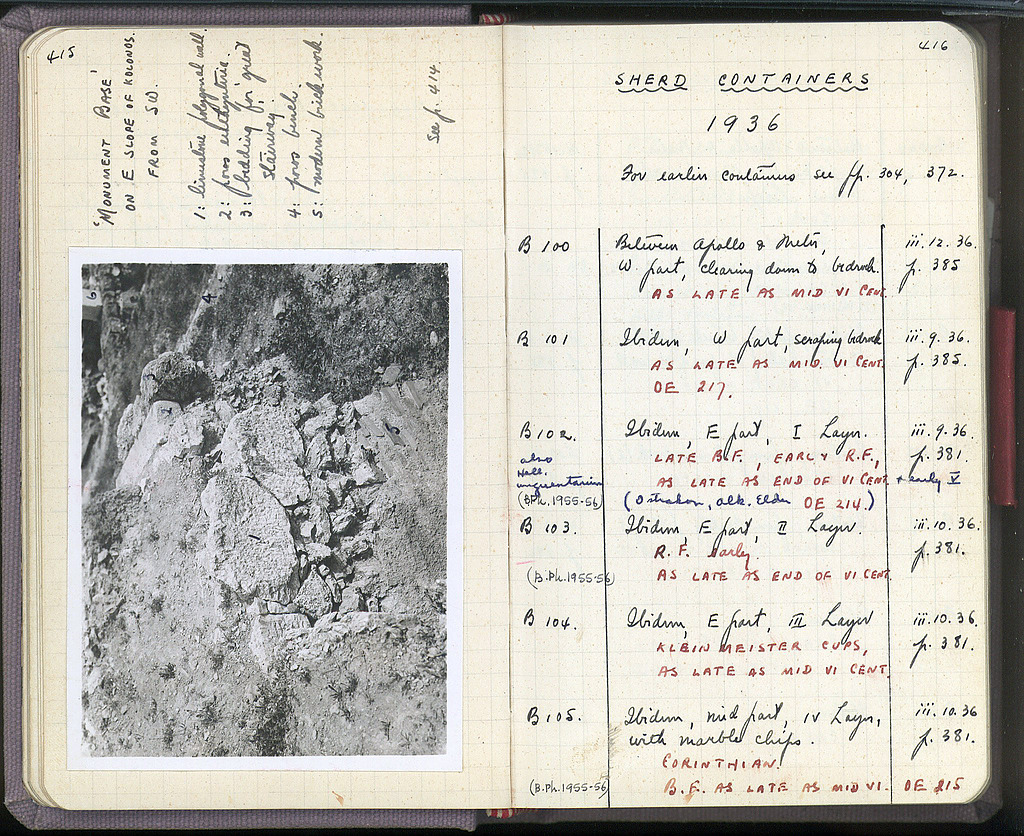 415
'MONUMENT BASE'
ON E SLOPE OF KOLONOS.
FROM SW.
1: limestone polygonal wall.
2: poros euthynteria.
3: bedding for 'great
stairway'.
4: poros bench.
5: modern brick work.
See p. 414.
6
4
2
1
5
416
SHERD CONTAINERS
1936
For earlier containers see pp. 304, 372.
B 100 Between Apollo & Metr, iii.12.36.
W. part, clearing down to bedrock. p. 385
AS LATE AS MID VI CENT.
B 101 Ibidem, W part, scraping bedrock iii.9.36.
AS LATE AS MID. VI CENT. p. 385.
OE 217.
B 102. Ibidem, E part, I Layer. iii.9.36.
also LATE B.F., EARLY R.F., p. 381
Hell. AS LATE AS END OF VI CENT + early V
unguentarium
(B.Ph. 1955-56) (Ostrakon, Alk. Elder OE 214.)
B 103. Ibidem, E part, II Layer. iii.10.36.
R.F. early. p. 381.
(B.Ph. 1955-56) AS LATE AS END OF VI CENT.
B 104. Ibidem, E part, III Layer iii.10.36.
KLEINMEISTER CUPS, p. 381.
AS LATE AS MID VI CENT.
B 105. Ibidem, mid part, IV Layer, iii.10.36
with marble chips. p. 381.
CORINTHIAN.
(B.Ph. 1955-56) B.F. AS LATE AS MID VI. OE 215